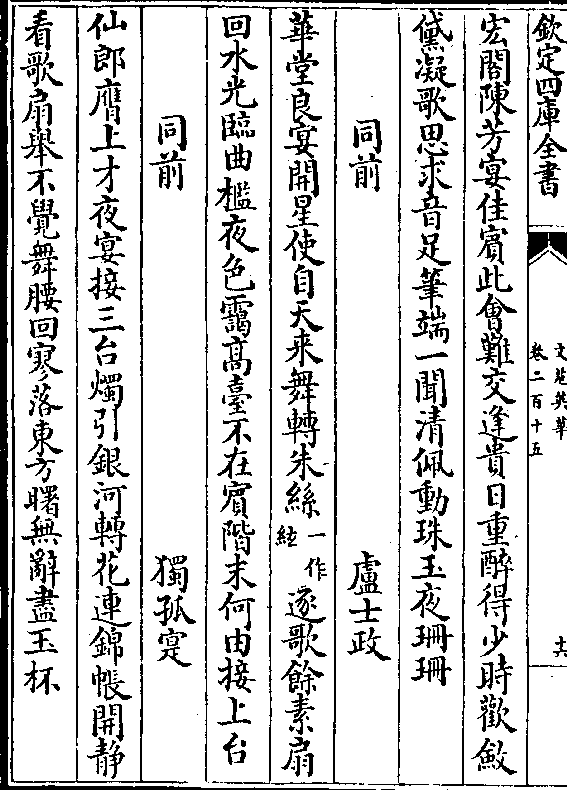 欽定四庫全書
文苑英華
卷二百十五
十六
宏閣陳芳宴佳賓此會難交逢貴日重醉得少時歡斂
黛凝歌思求音足筆端一聞清佩動珠玉夜珊珊
同前 盧士政
華堂良宴開星使自天來舞轉朱絲一作絃逐歌餘素扇
回水光臨曲檻夜色靄高臺不在賓階末何由接上台
同前 獨孤寔
仙郎膺上才夜宴接三台燭引銀河轉花連錦帳開靜
看歌扇舉不覺舞腰回寥落東方曙無辭盡玉杯